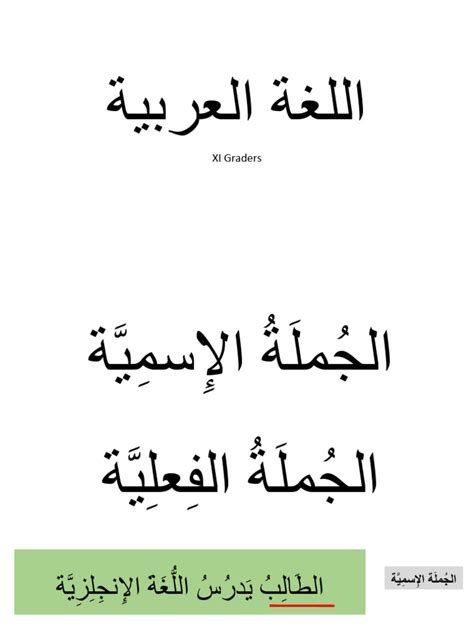 اللغة العربية
XI Graders
الجُملَةُ الإِسمِيَّة
الجُملَةُ الفِعلِيَّة
الطَّالِبُ يَدرُسُ اللُّغَة الإِنجِلِزِيَّة
الجُملَة الإِسمِيَّة